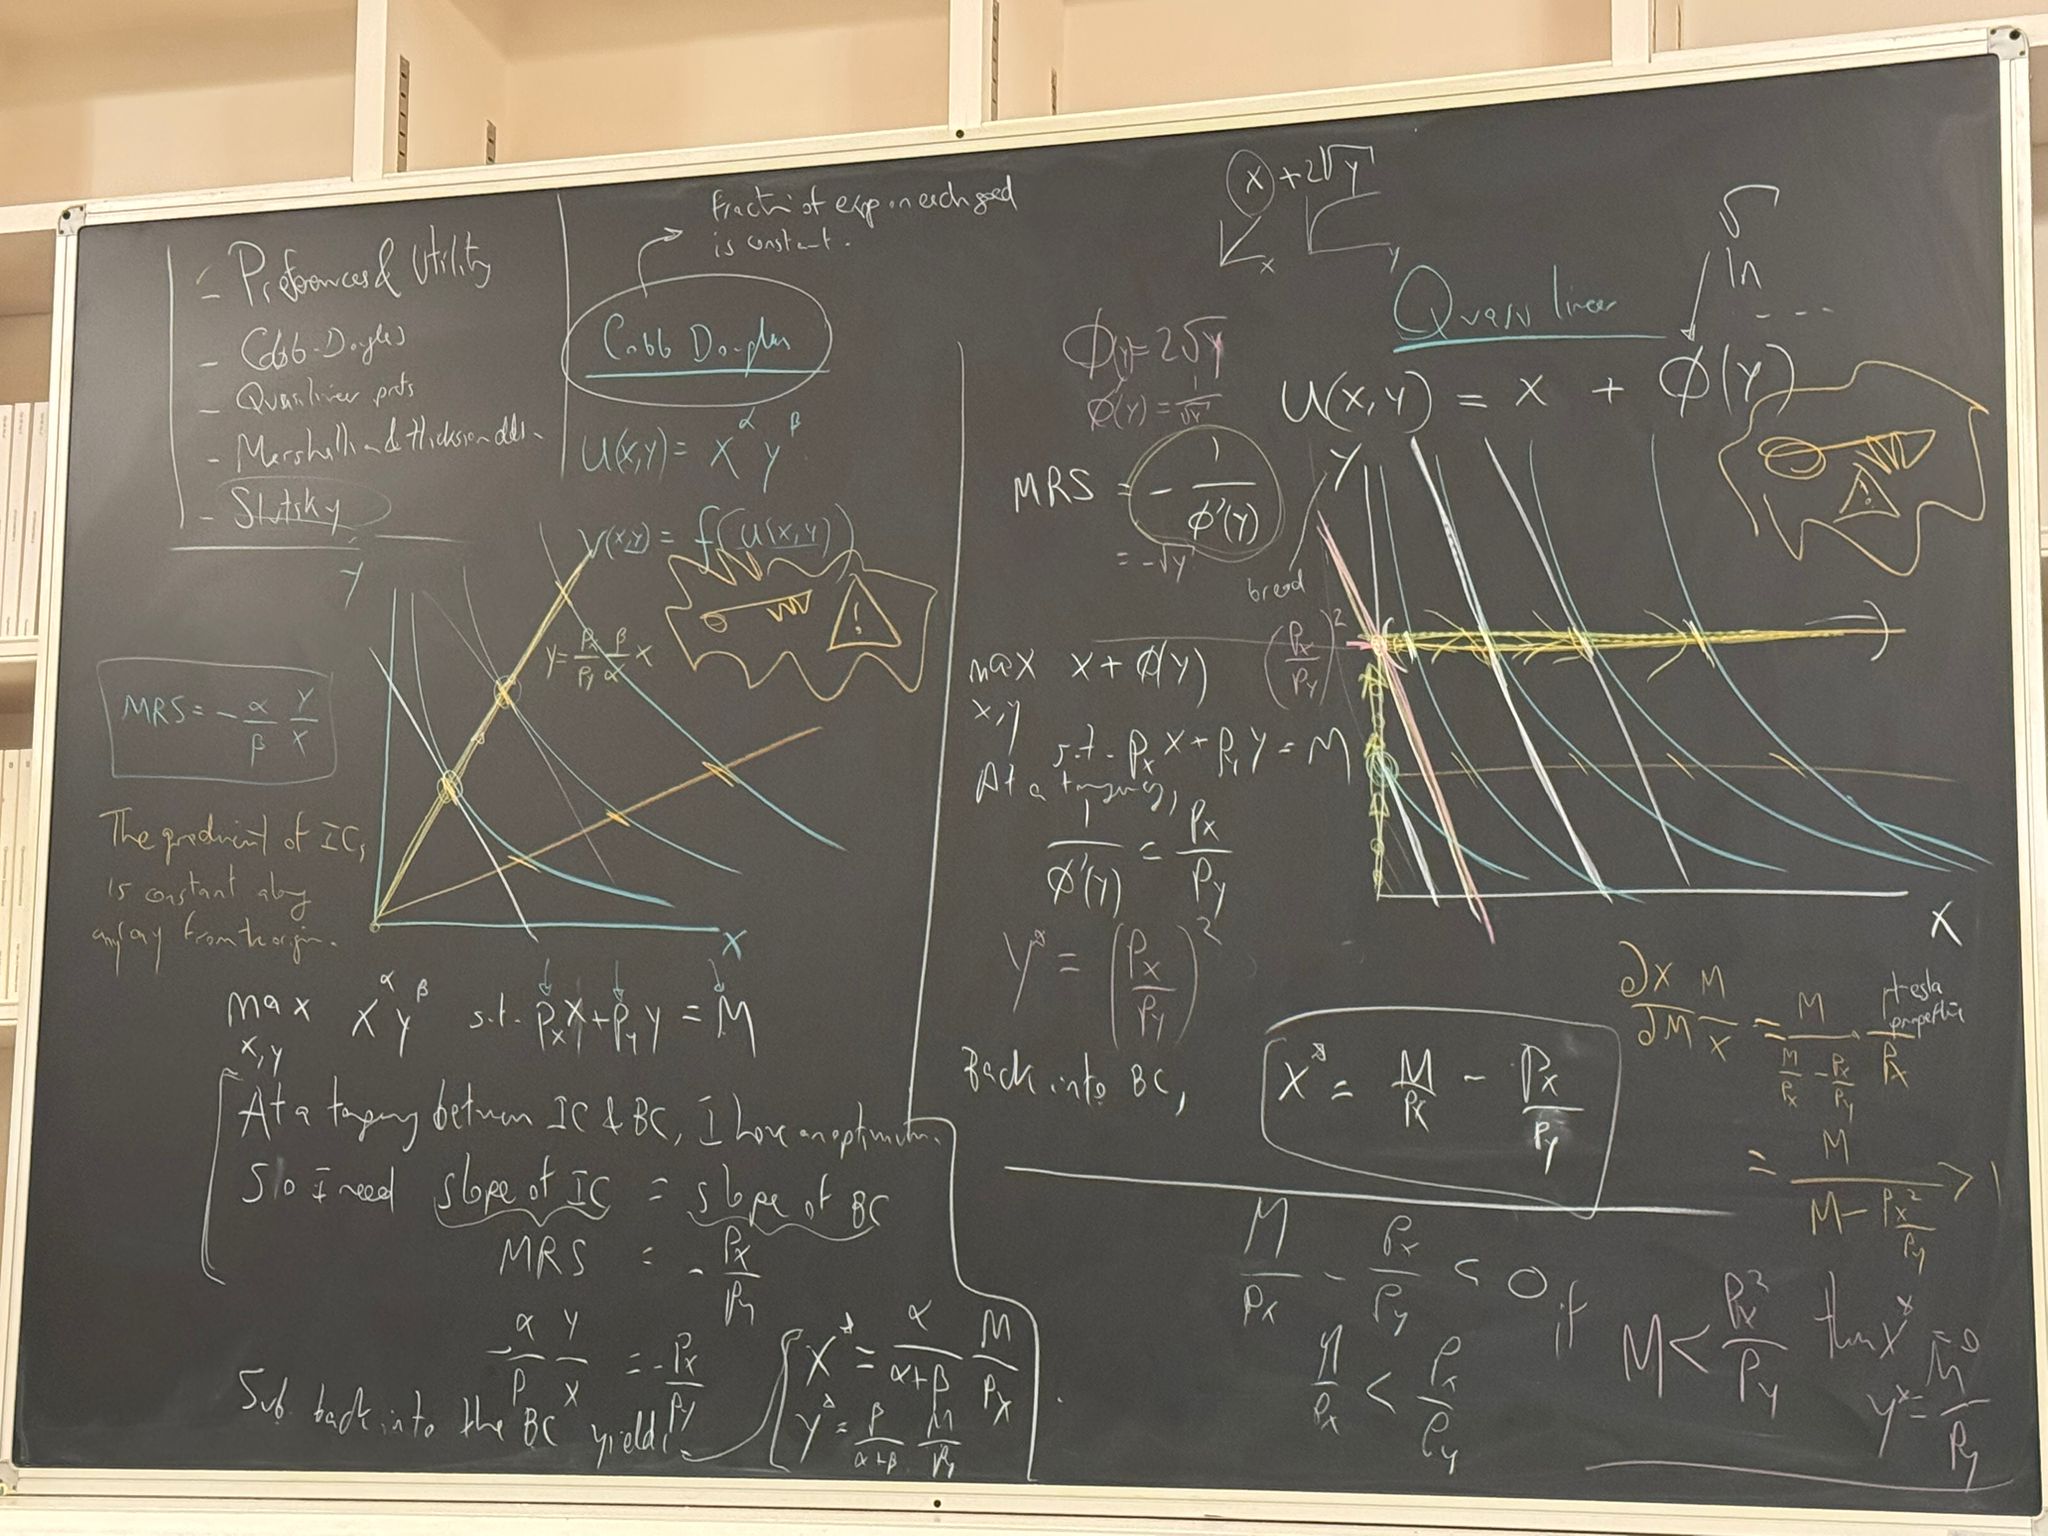 - Preferences & Utility
- Cobb-Douglas
- Quasilinear prefs
- Marshallian & Hicksian
- Slutsky
Fract of exp on each good
is constant.
Cobb Douglas
U(x,y) = x^α y^β
V(x,y) = f(U(x,y))
y
y = Px/Py β/α x
!
MRS = - α/β y/x
The gradient of ICs
is constant along
any ray from the origin.
x
max x^α y^β s.t. Px x + Py y = M
x,y
At a tangency between IC & BC, I have an optimum.
So I need slope of IC = slope of BC
MRS = - Px/Py
- α/β y/x = - Px/Py
Sub. back into the BC yields
x* = α/(α+β) M/Px
y* = β/(α+β) M/Py
x + 2√y
x
y
√
ln
...
Quasilinear
φ(y) = 2√y
U(x,y) = x + φ(y)
MRS = - 1/φ'(y)
= -√y
y
!
bread
(Px/Py)^2
max x + φ(y)
x,y
s.t. Px x + Py y = M
At a tangency,
1/φ'(y) = Px/Py
y* = (Px/Py)^2
x
Back into BC,
x* = M/Px - Px/Py
∂x/∂M M/x = M/(M/Px - Px/Py) · 1/Px
tesla
properties
= M/(M - Px^2/Py) > 1
M/Px - Px/Py < 0 if
M/Px < Px/Py
M < Px^2/Py then x* = 0
y* = M/Py